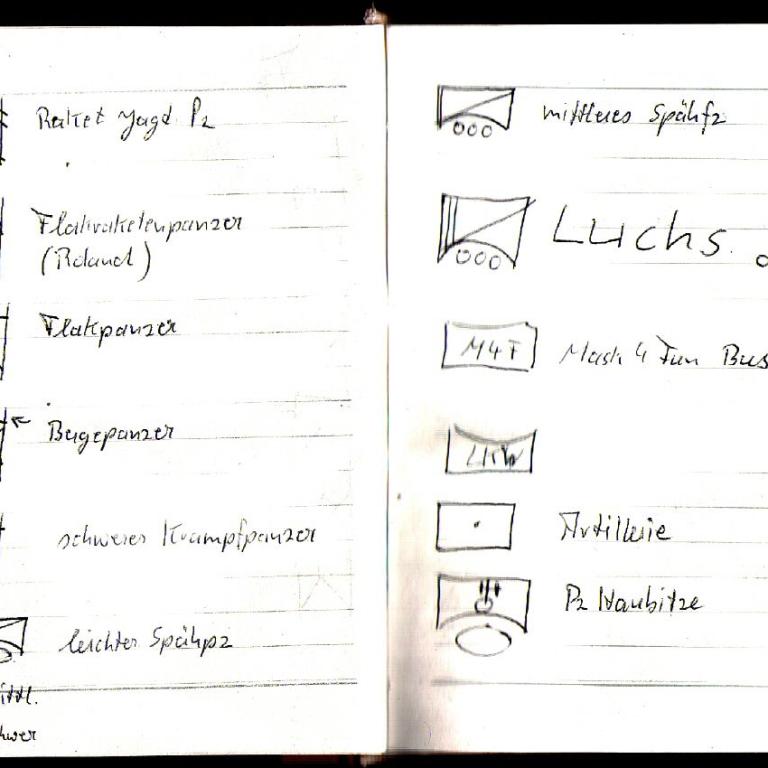 Raket Jagd Pz
Flakraketenpanzer
(Roland)
Flakpanzer
Bergepanzer
schwerer Krampfpanzer
leichter Spähpz
ittl.
hwer
mittleres Spähfz
Luchs
M4F
Mash 4 Fun Bus
LKW
Artillerie
Pz Haubitze